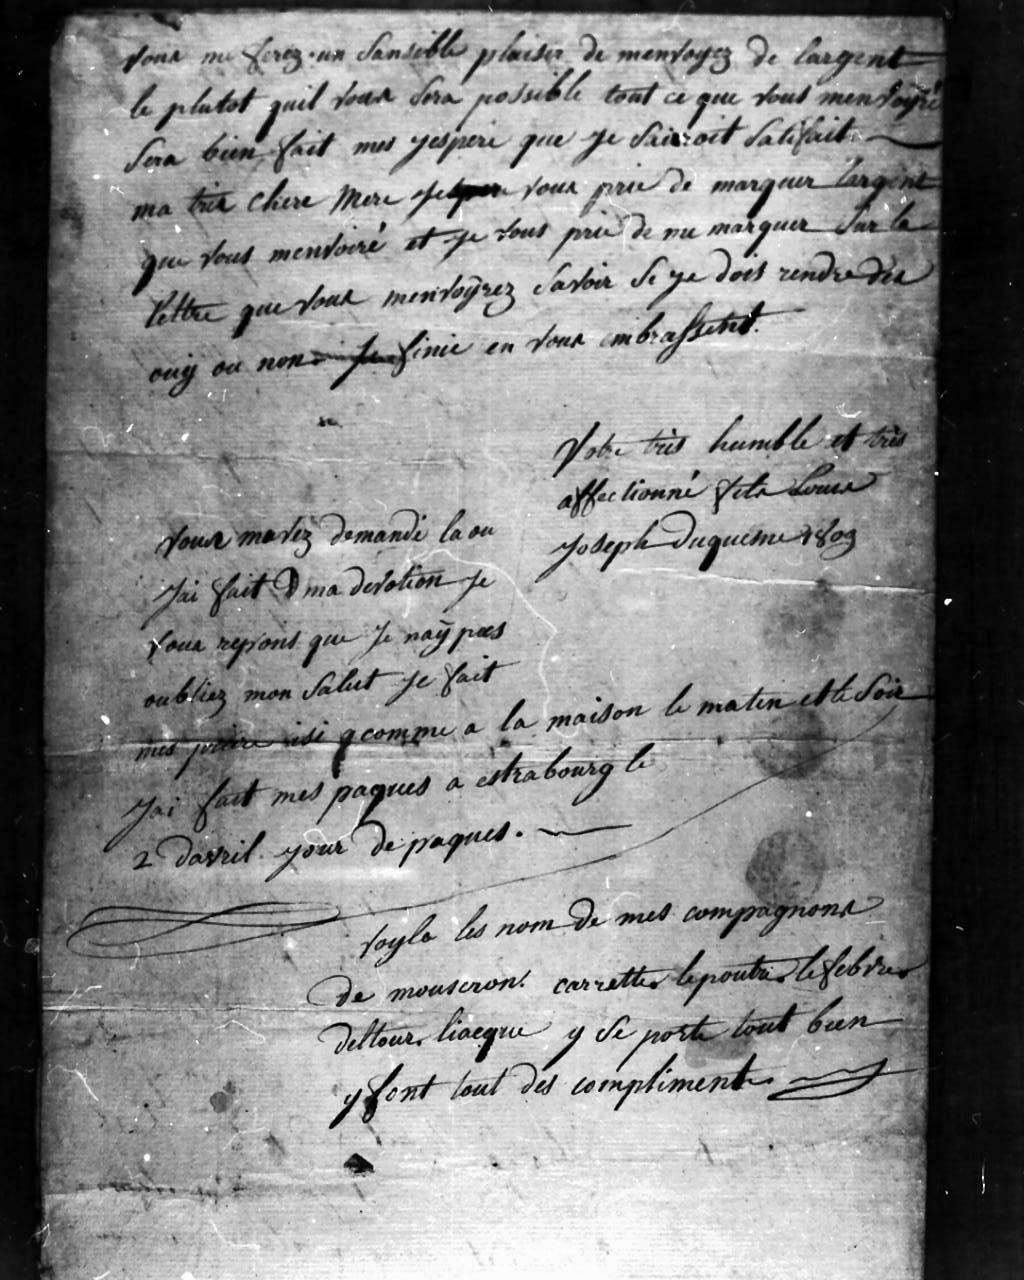 vous me ferez un sansible plaisir de menvoyez de largent
le plutot quil vous sera possible tout ce que vous menvoyré
sera bien fait mes jespere que je sairoit satifait
ma tres chere Mere je vous prie de marquer largent
que vous menvoiré et je vous prie de me marquer sur la
lettre que vous menvoyrez savoir si je dois rendre des
ouy ou non je finie en vous embrassent.
Votre tres humble et très
affectionné fils Louis
Joseph Duquesne 1809
vous mavez demandé la ou
Jai fait ma devotion je
vous repons que je naÿ pas
oubliez mon salut je fait
mes priere isi comme a la maison le matin et le soir
Jai fait mes paques a estrabourg le
2 davril jour de paques.
voyla les nom de mes compagnons
de mouscron. carrette lepoutre lefebvre
deltour liaeque y se porte tout bien
y font tout des compliment